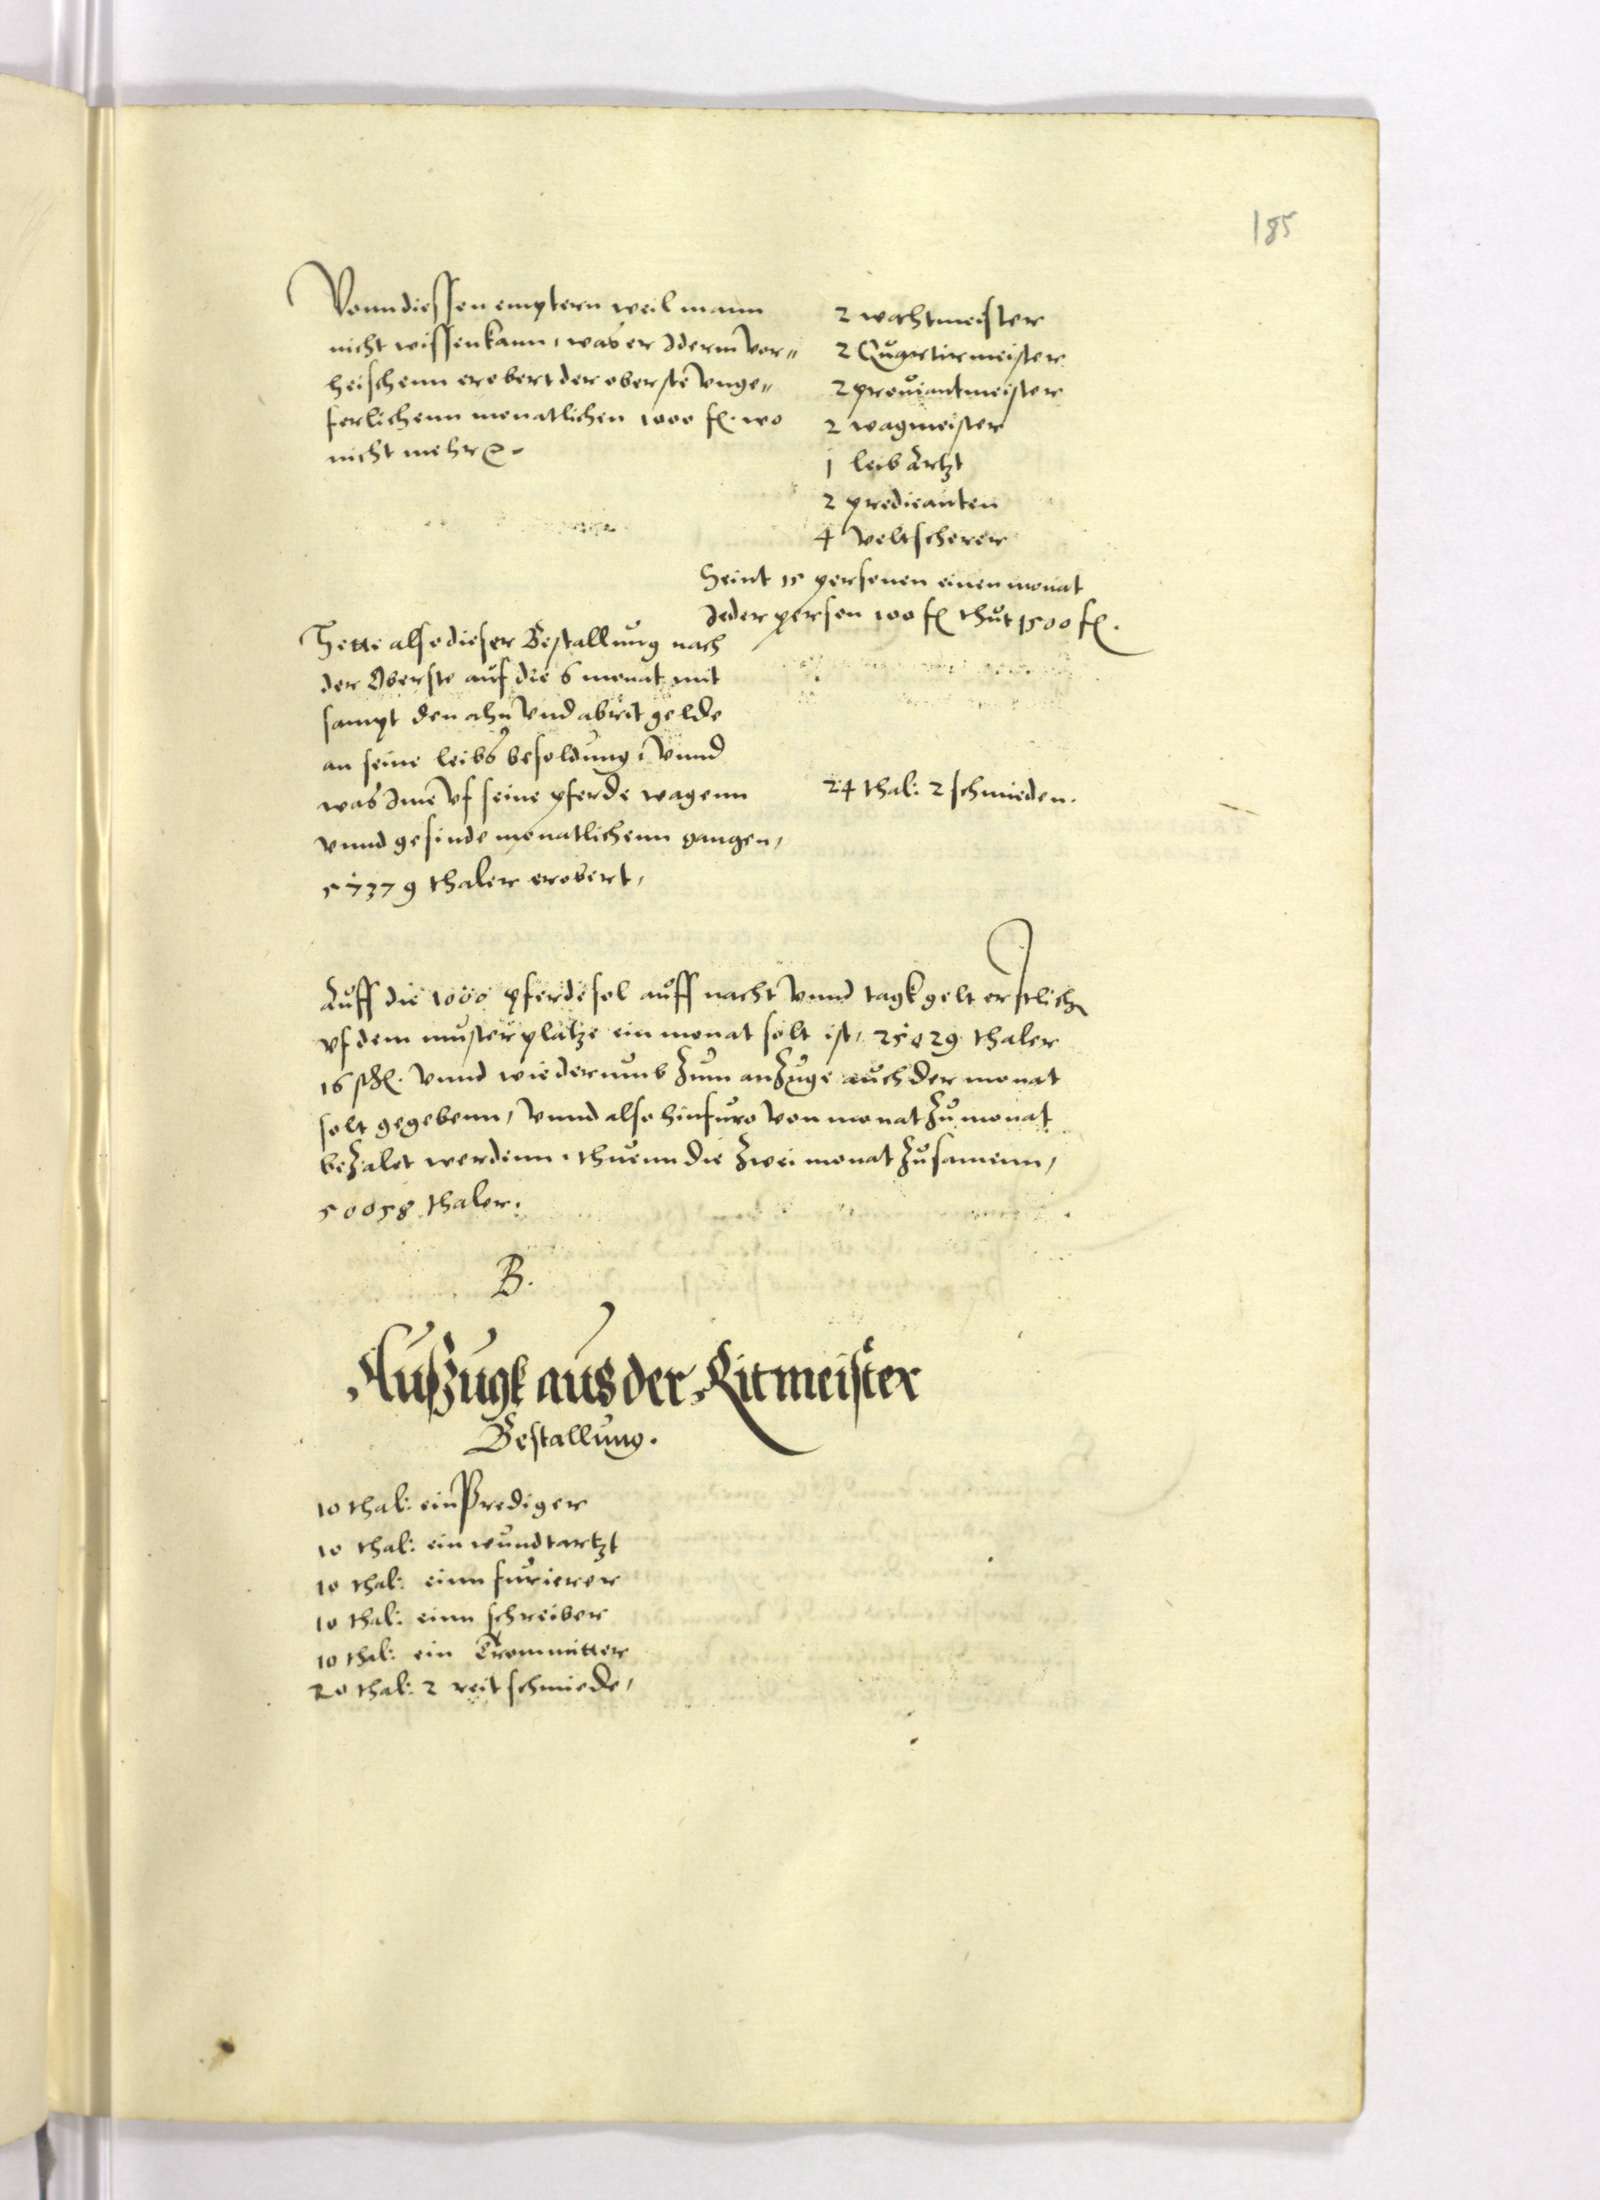 185
Vonn diessen emptern weil mann
nicht wissen kann, was er Iderm vor„
heischenn erobert der oberste vnge„
ferlichenn monatlichen 1000 fl. wo
nicht mehr
2 wachtmeister
2 Quartirmeister
2 proviantmeister
2 wagmeister
1 leib Artzt
2 predicanten
4 veltscherer
Seint 15 personen einen monat
Jeder person 100 fl thut 1500 fl.
Hette also dieser Bestallung nach
der Oberste auf die 6 monat mit
sampt den ahn vnd abrit gelde
an seine leibs besoldung, vnnd
was Ime vf seine pferde wagenn
vnnd gesinde monatlichenn gangen,
57379 thaler erobert,
24 thal: 2 schmieden.
Auff die 1000 pferde sol auff nacht vnnd tagk gelt erstlich
vf dem musterplatze ein monat solt ist, 25029 thaler
16 ßl. vnnd wiederumb zum anzuge auch der monat
solt gegebenn, vnnd also hinfuro von monat zu monat
bezalet werdenn, thuenn die zwei monat zusamenn,
50058 thaler.
B.
Außzugk aus der Ritmeister
Bestallung.
10 thal: ein Prediger
10 thal: ein wundtartzt
10 thal: einn furierer
10 thal: einn schreiber
10 thal: ein Trommitter
20 thal: 2 reit schmiede,